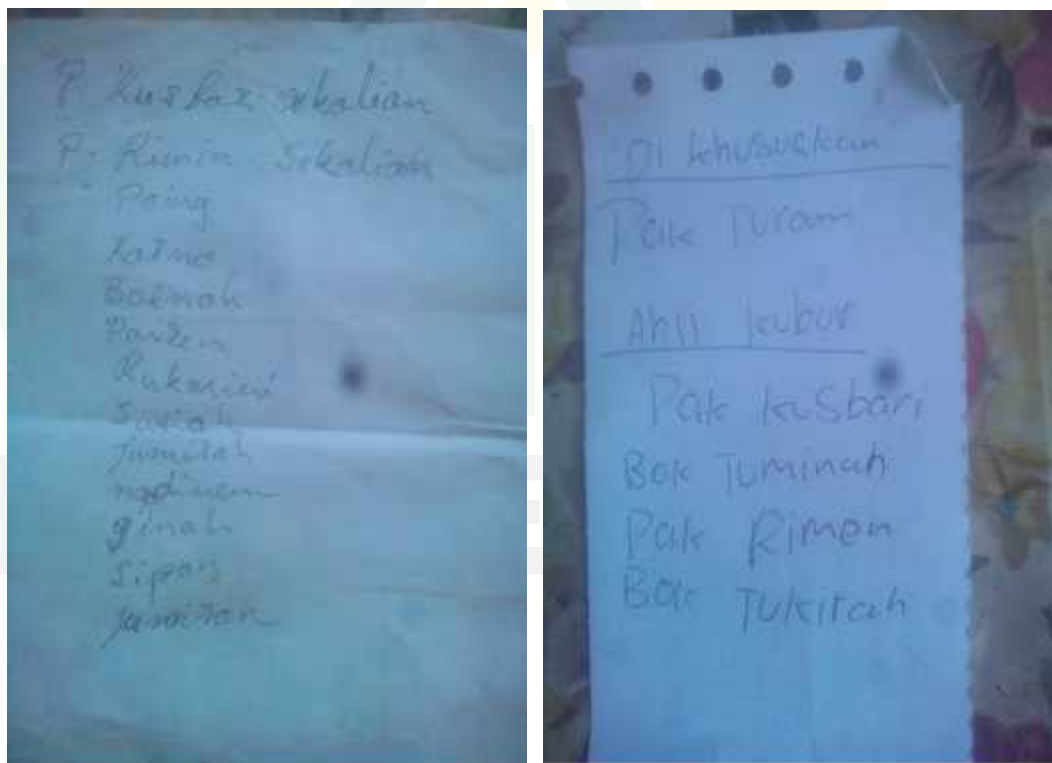 P. Kusbari sekalian
P. Rimin sekalian
Paing
Katno
Boinah
Rukasini
Jumilah
ngdinem
ginah
Jamiran
DI khususkan
Pak Turam
Ahli kubur
Pak kusbari
Bok Tuminah
Pak Rimen
Bok Tukirah